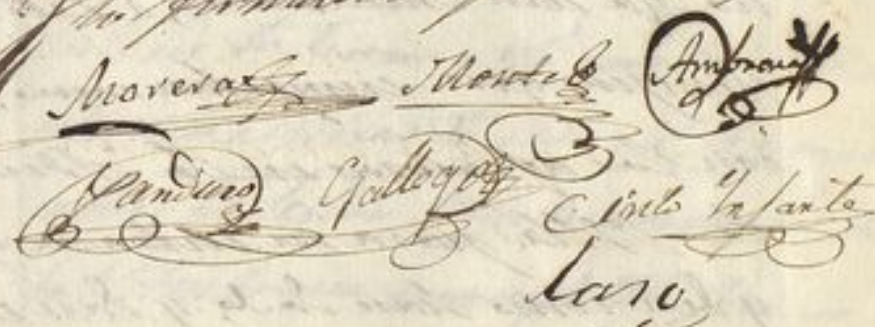 Morera Montes Ambrona
Panduro Gallego Cirilo Infante
Laso